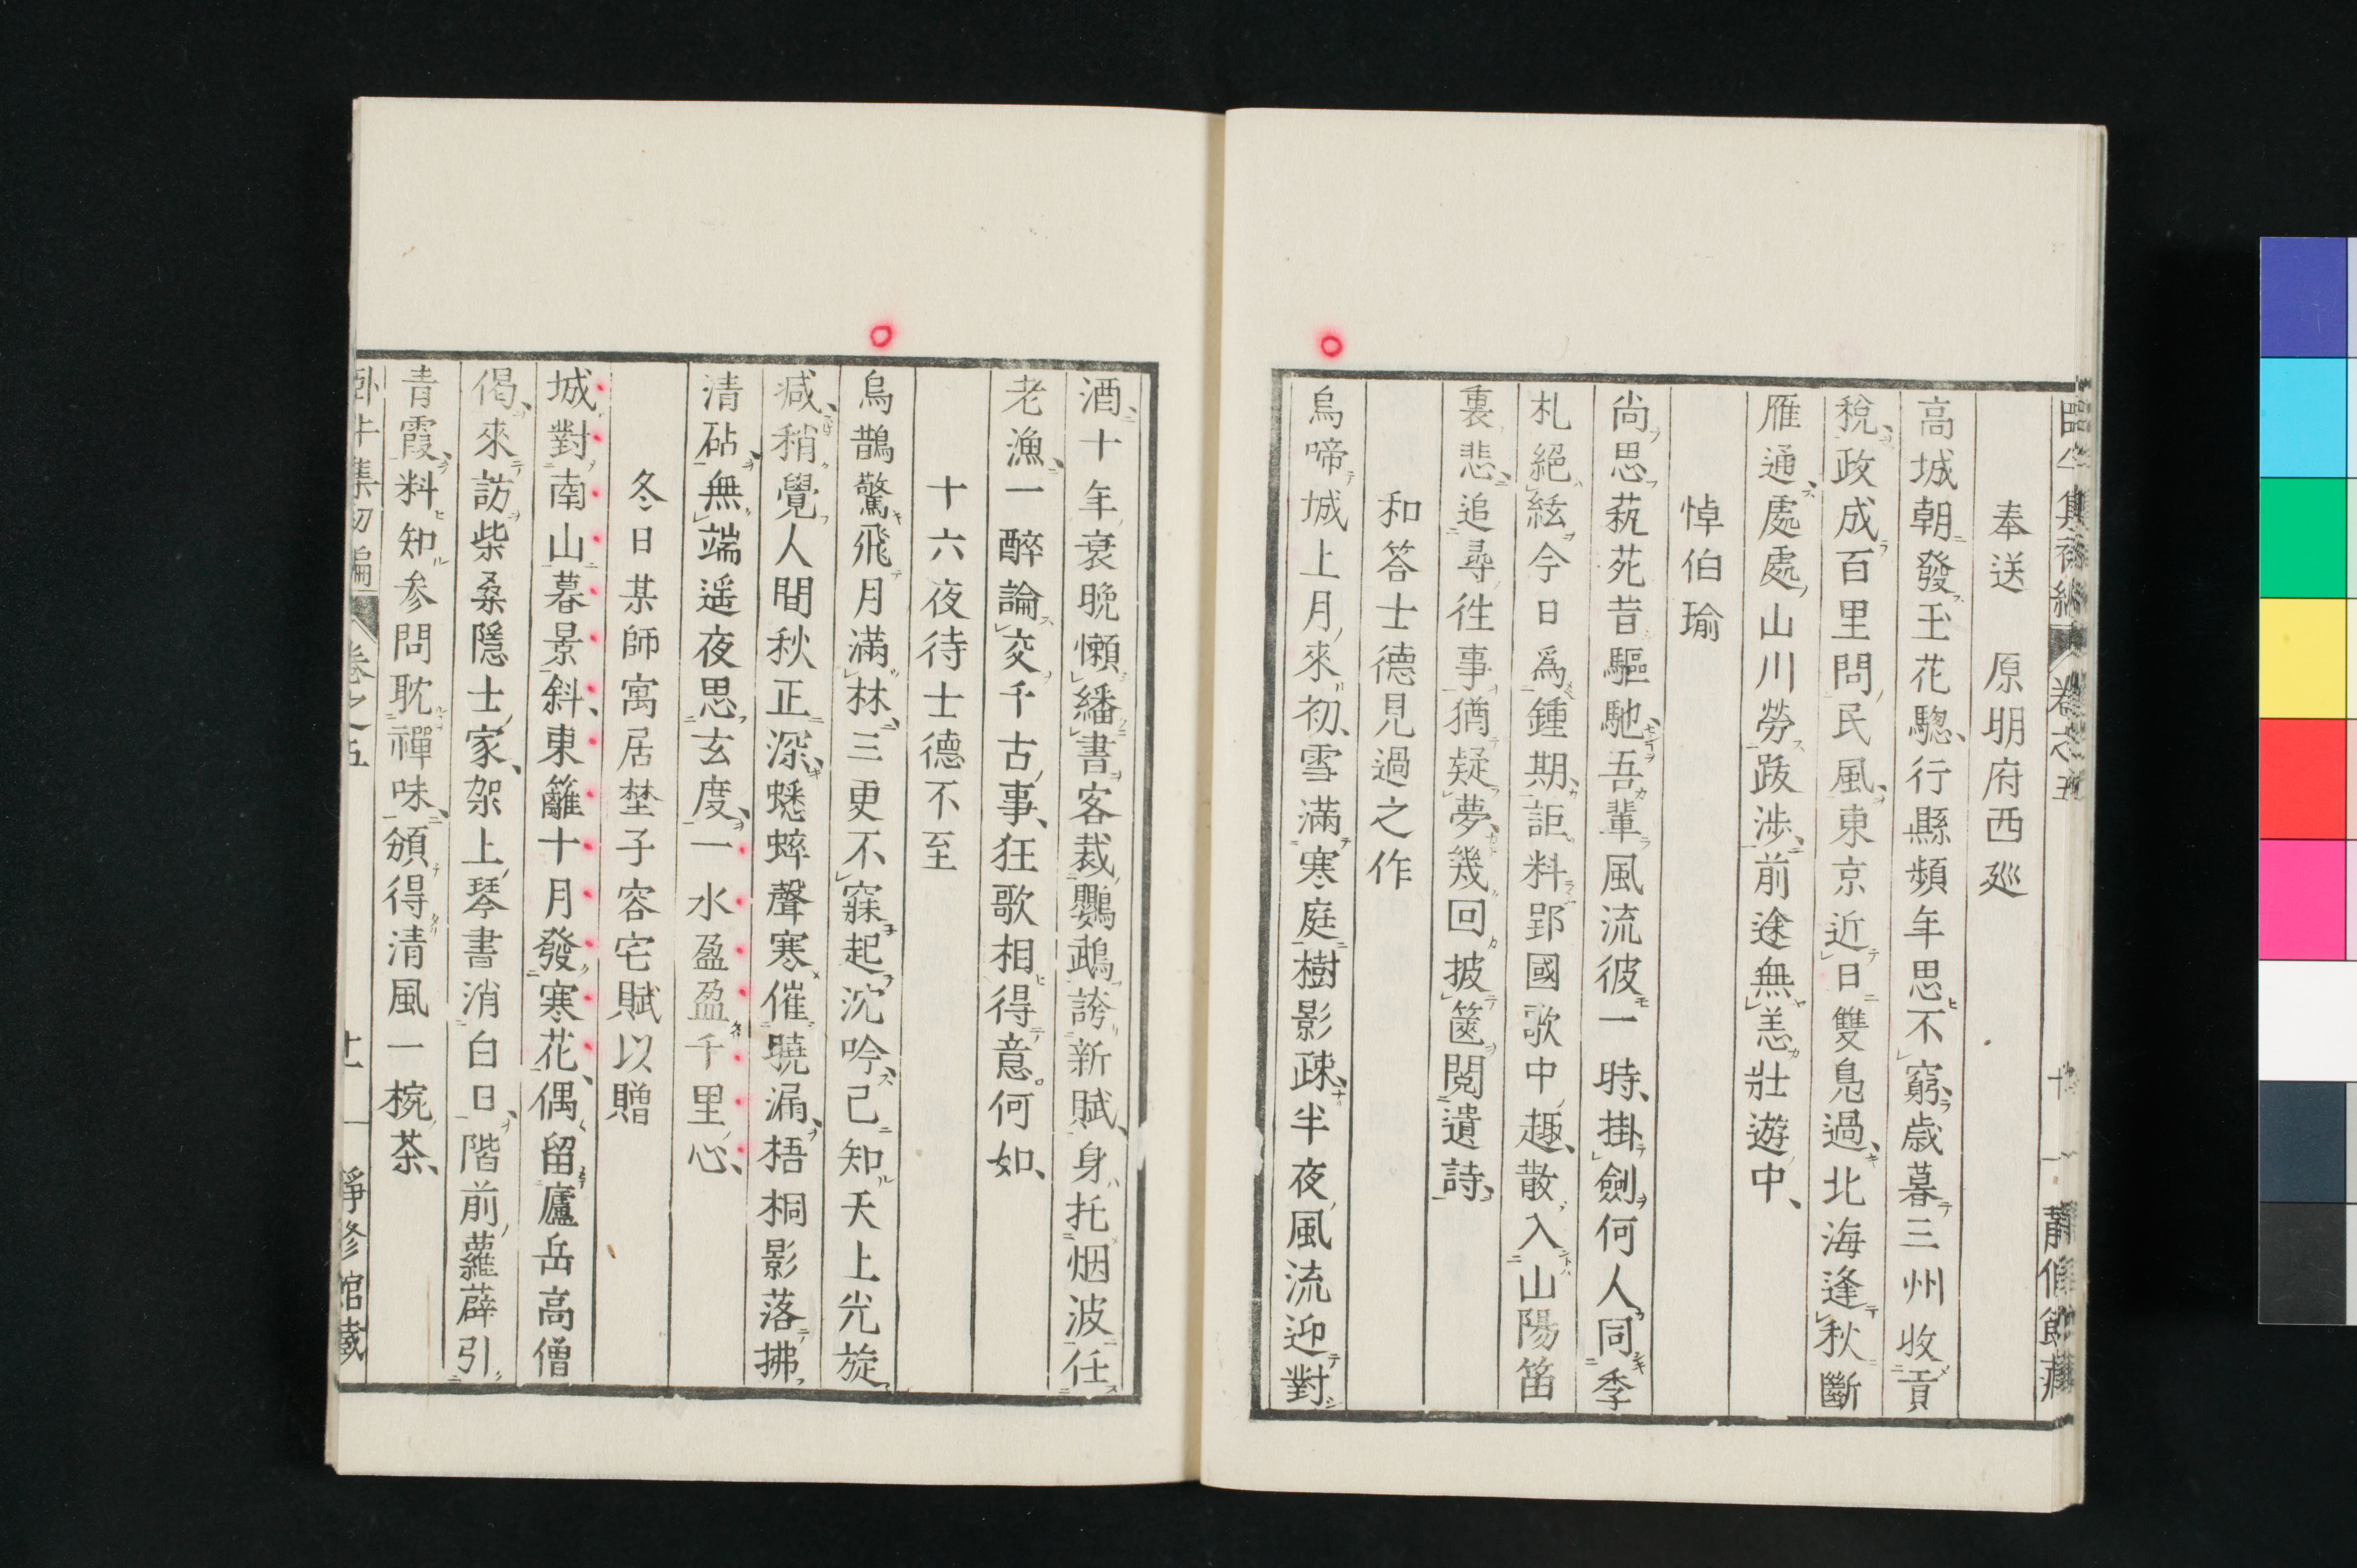 奉送 原明府西廵
高城朝發玉花驄行縣頻年思不窮歳暮三州收貢
稅政成百里問民風東京近日雙鳬過北海逢秋斷
雁通處處山川勞跋渉前途無恙壯遊中
悼伯瑜
尚思蓺苑昔驅馳吾輩風流彼一時掛劍何人同季
札絕絃今日爲鍾期詎料郢國歌中趣散入山陽笛
裏悲追尋往事猶疑夢幾回披篋閱遺詩
和答士德見過之作
烏啼城上月來初雪滿寒庭樹影疎半夜風流迎對
酒十年衰晚懶繙書客裁鸚鵡誇新賦身托烟波任
老漁一醉論交千古事狂歌相得意何如
十六夜待士德不至
烏鵲驚飛月滿林三更不寐起沈吟己知天上光旋
减稍覺人間秋正深蟋蟀聲寒催曉漏梧桐影落拂
清砧無端遥夜思玄度一水盈盈千里心
冬日某師寓居埜子容宅賦以贈
城對南山暮景斜東籬十月發寒花偶留廬岳高僧
偈來訪柴桑隱士家架上琴書消白日階前蘿薜引
青霞料知参問耽禪味頒得清風一椀茶
臥牛集初編 卷之五 十一 靜修館藏